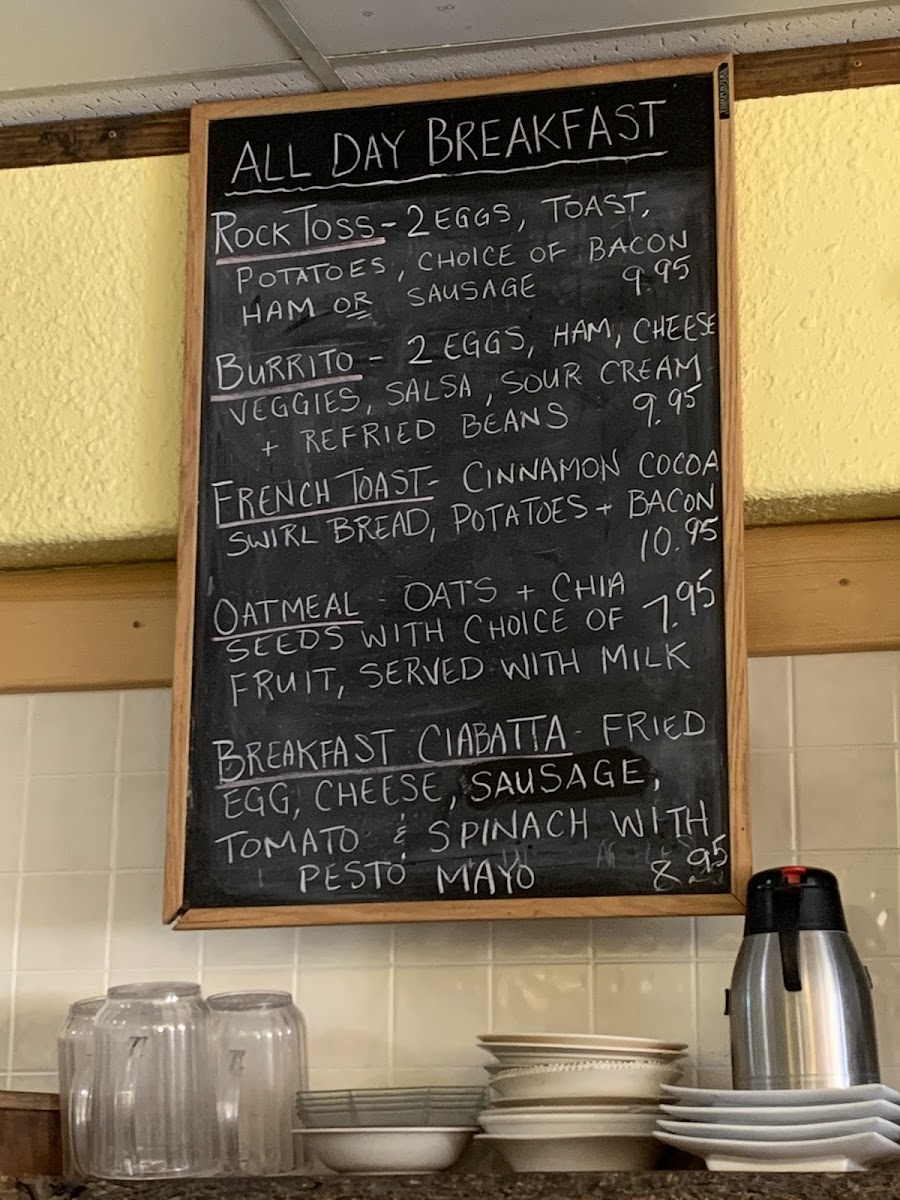 ALL DAY BREAKFAST
ROCK TOSS - 2 EGGS, TOAST,
POTATOES, CHOICE OF BACON
HAM OR SAUSAGE 9.95
BURRITO - 2 EGGS, HAM, CHEESE
VEGGIES, SALSA, SOUR CREAM
+ REFRIED BEANS 9.95
FRENCH TOAST - CINNAMON COCOA
SWIRL BREAD, POTATOES + BACON
10.95
OATMEAL - OATS + CHIA
SEEDS WITH CHOICE OF 7.95
FRUIT, SERVED WITH MILK
BREAKFAST CIABATTA - FRIED
EGG, CHEESE, SAUSAGE,
TOMATO & SPINACH WITH
PESTO MAYO 8.95